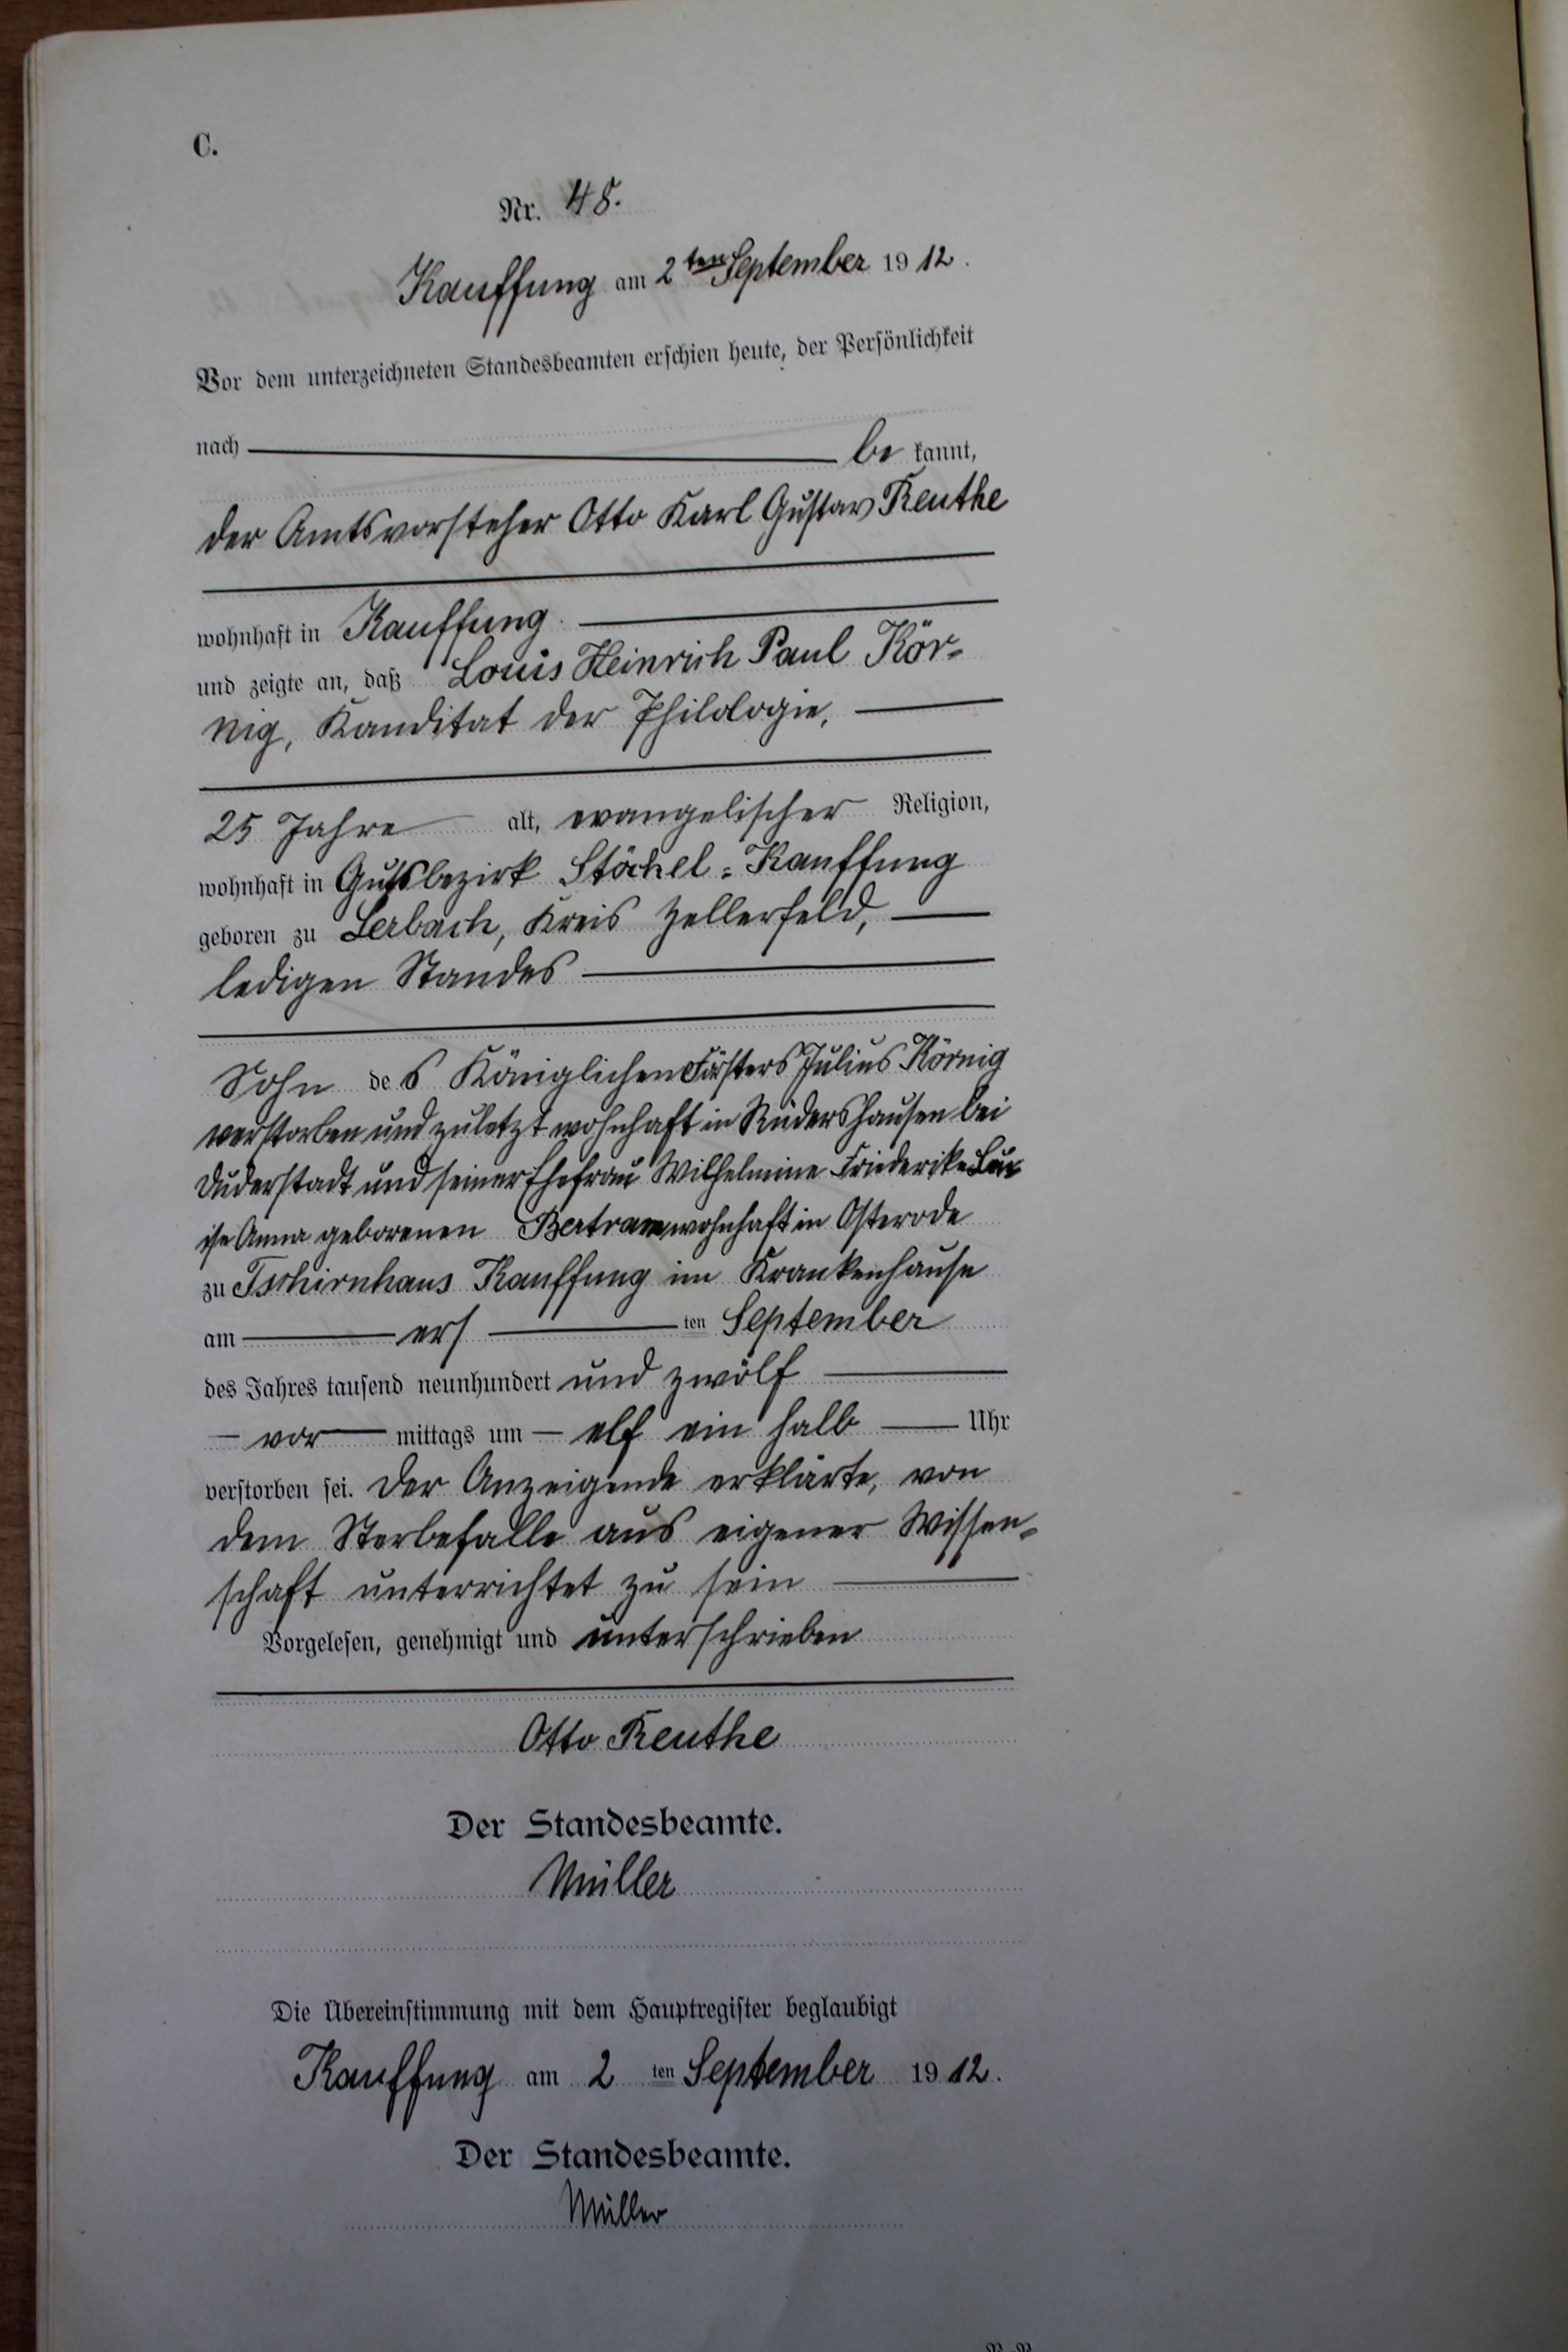 C.
Nr. 48.
Kauffung am 2ten September 1912.
Vor dem unterzeichneten Standesbeamten erschien heute, der Persönlichkeit
nach be kannt,
der Amtsvorsteher Otto Karl Gustav Reuthe
wohnhaft in Kauffung
und zeigte an, daß Louis Heinrich Paul Kör-
nig, Kanditat der Philologie,
25 Jahre alt, evangelischer Religion,
wohnhaft in Gutsbezirk Stöckel-Kauffung
geboren zu Lerbach, Kreis Zellerfeld,
ledigen Standes
Sohn des Königlichen Försters Julius Körnig
verstorben und zuletzt wohnhaft in Rüdershausen bei
Duderstadt und seiner Ehefrau Wilhelmine Friederike Lou-
ise Anna geborenen Bertram wohnhaft in Osterode
zu Tschirnhaus Kauffung im Krankenhause
am ers ten September
des Jahres tausend neunhundert und zwölf
vor mittags um elf ein halb Uhr
verstorben sei. Der Anzeigende erklärte, von
dem Sterbefalle aus eigener Wissen-
schaft unterrichtet zu sein
Vorgelesen, genehmigt und unterschrieben
Otto Reuthe
Der Standesbeamte.
Müller
Die Übereinstimmung mit dem Hauptregister beglaubigt
Kauffung am 2 ten September 1912.
Der Standesbeamte.
Müller